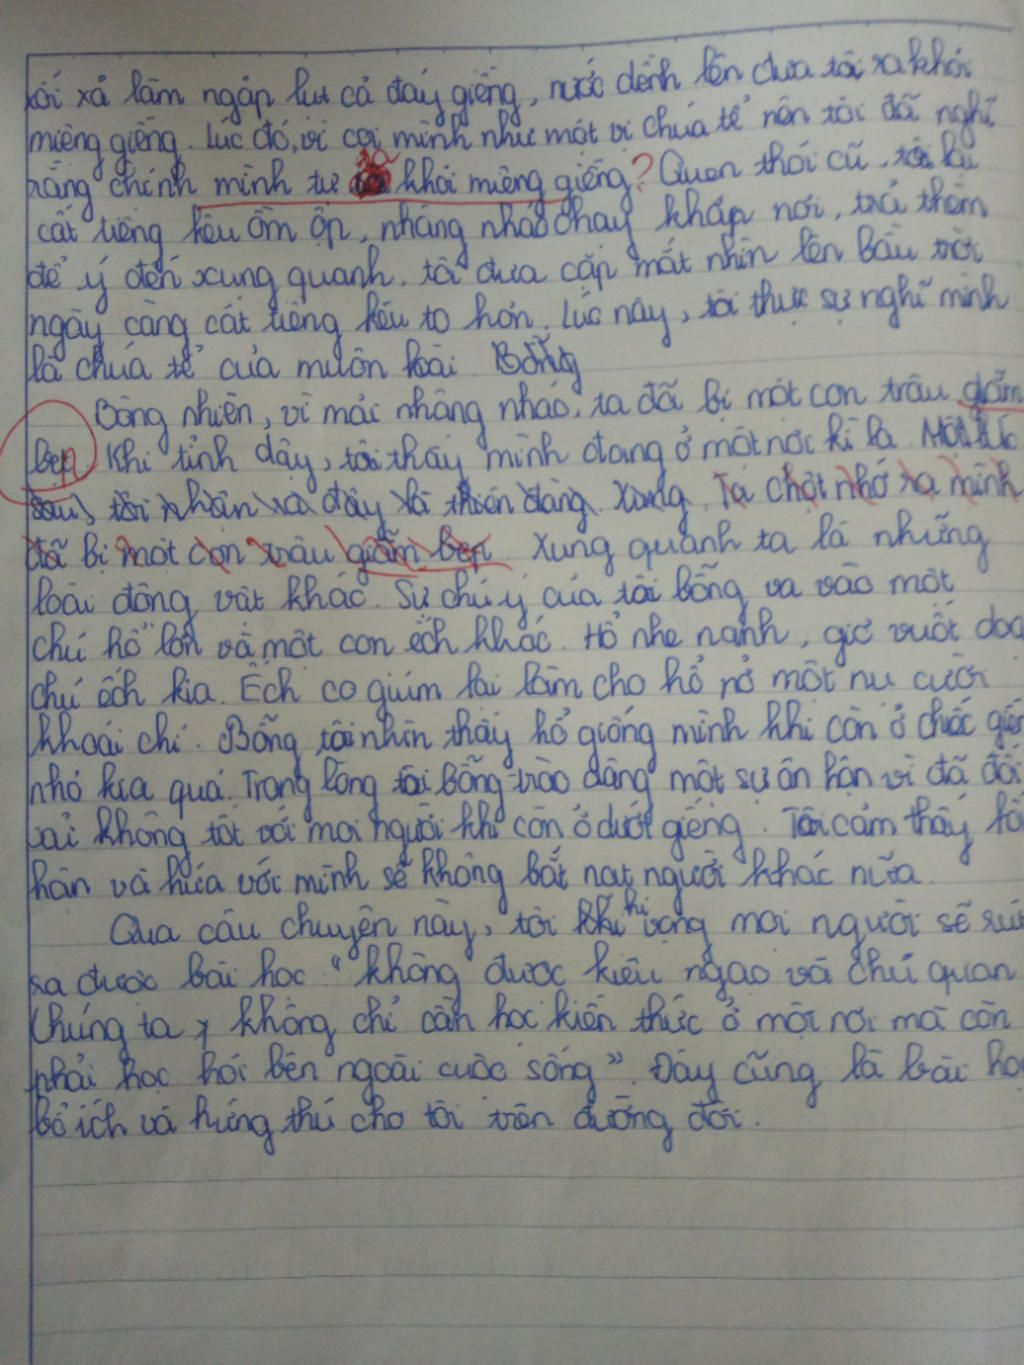 xối xả làm ngập lụt cả đáy giếng, nước dềnh lên đưa tôi ra khỏi
miệng giếng. Lúc đó, vì coi mình như một vị chúa tể nên tôi đã nghĩ
rằng chính mình tự ra khỏi miệng giếng? Quen thói cũ, tôi lại
cất tiếng kêu ồm ộp, nhâng nháo chạy khắp nơi, trả thèm
để ý đến xung quanh, tôi đưa cặp mắt nhìn lên bầu trời
ngày càng cất tiếng kêu to hơn. Lúc này, tôi thực sự nghĩ mình
là chúa tể của muôn loài. Bỗng
Bỗng nhiên, vì mải nhâng nháo, ta đã bị một con trâu giẫm
bẹp. Khi tỉnh dậy, tôi thấy mình đang ở một nơi kì lạ. Một lúc
sau, tôi nhận ra đây là thiên đàng. Xung. Ta chợt nhớ ra mình
đã bị một con trâu giẫm bẹp. Xung quanh ta là những
loài động vật khác. Sự chú ý của tôi bỗng va vào một
chú hổ lớn và một con ếch khác. Hổ nhe nanh, giơ vuốt doạ
chú ếch kia. Ếch co giúm lại làm cho hổ nở một nụ cười
khoái chí. Bỗng tôi nhìn thấy hổ giống mình khi còn ở chiếc giếng
nhỏ kia quá. Trong lòng tôi bỗng trào dâng một sự ân hận vì đã đối
xử không tốt với mọi người khi còn ở dưới giếng. Tôi cảm thấy hối
hận và hứa với mình sẽ không bắt nạt người khác nữa.
Qua câu chuyện này, tôi khi hi vọng mọi người sẽ rút
ra được bài học "không được kiêu ngạo và chủ quan
Chúng ta, không chỉ cần học kiến thức ở một nơi mà còn
phải học hỏi bên ngoài cuộc sống". Đây cũng là bài học
bổ ích và hứng thú cho tôi trên đường đời.